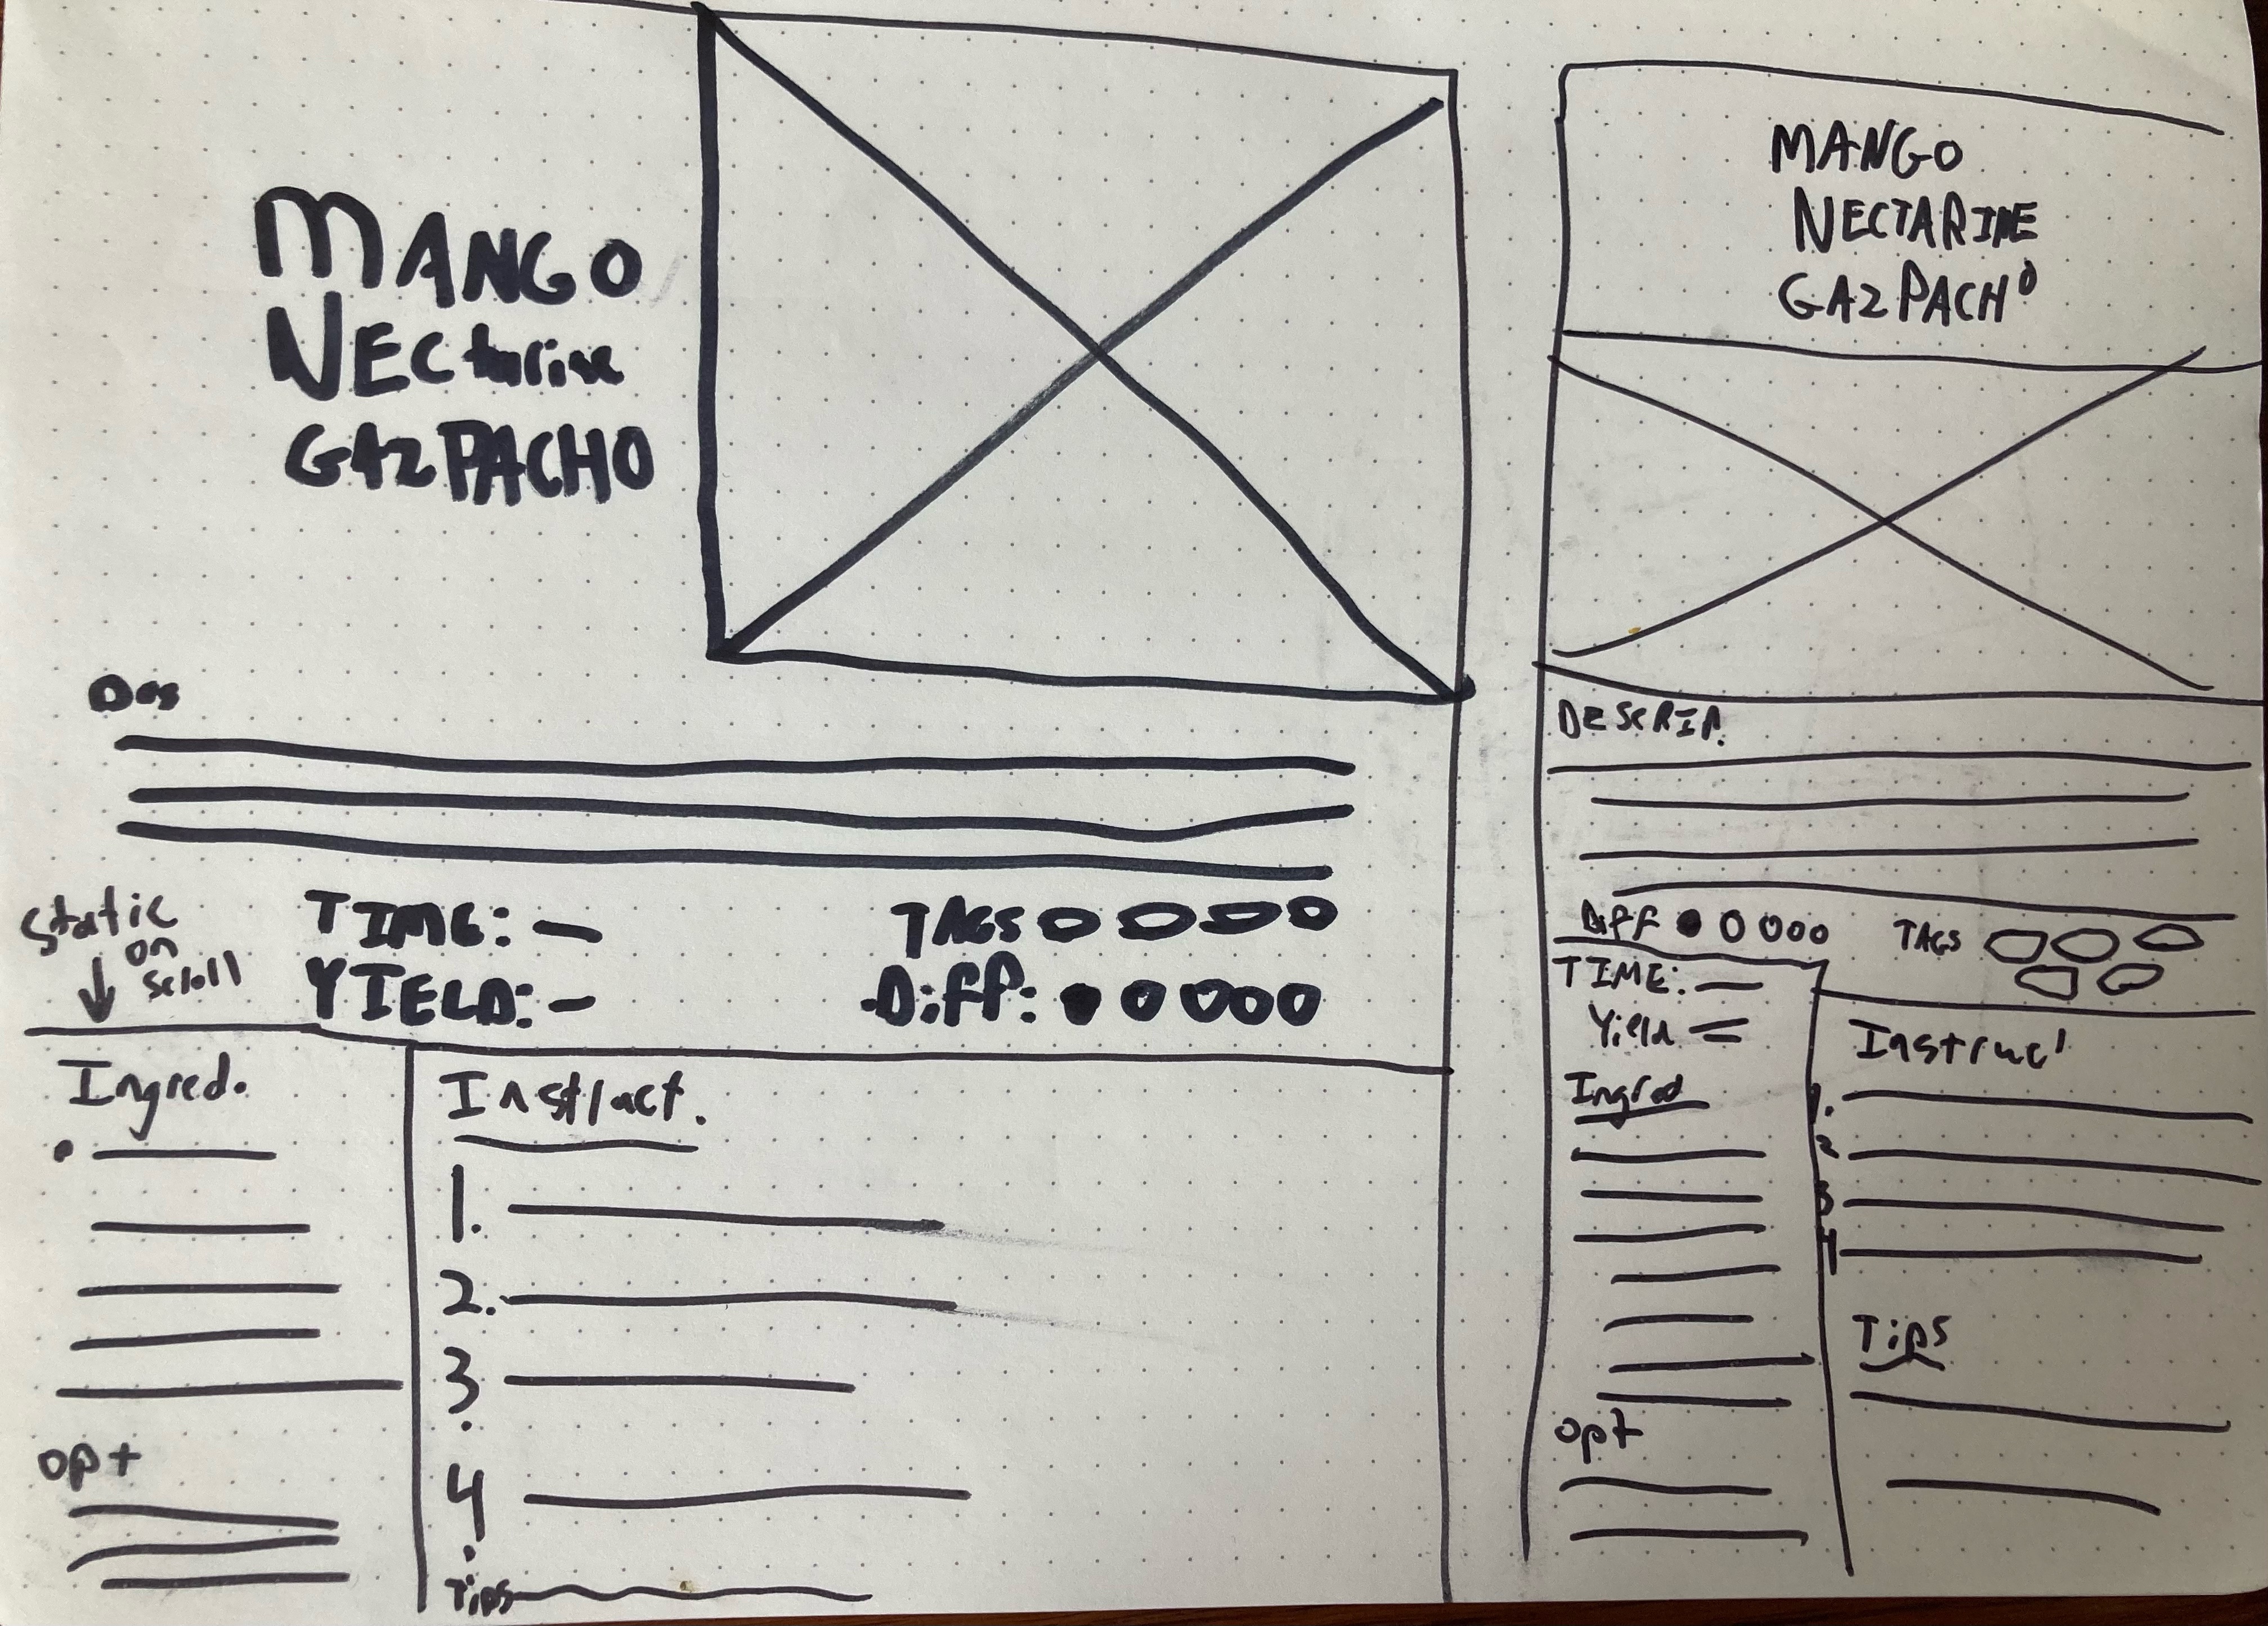 MANGO
NECtarine
GAZPACHO
Des
static
on
scroll
TIME: —
YIELD: —
TAGS
Diff:
Ingred.
opt
Instruct.
1.
2.
3.
4.
Tips
MANGO
NECTARINE
GAZPACHO
DESCRIP.
Diff
TAGS
TIME: —
Yield
Ingred
opt
Instruc
1.
2
3
4
Tips